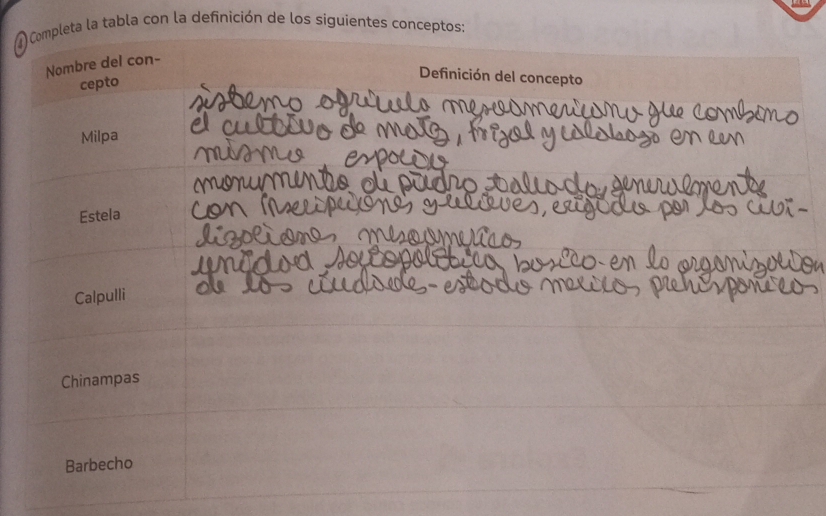 4) Completa la tabla con la definición de los siguientes conceptos:
Nombre del con-
cepto
Definición del concepto
Milpa
sistema agricula mesoamericano que combina
el cultivo de maíz, frijol y calabaza en un
mismo espacio
Estela
monumento de piedra tallada, generalmente
con inscripciones y relieves, erigida por las civi-
lizaciones mesoamericas
Calpulli
unidad sociopolítica basica en la organización
de las ciudades-estado mexicos prehispanicos
Chinampas
Barbecho